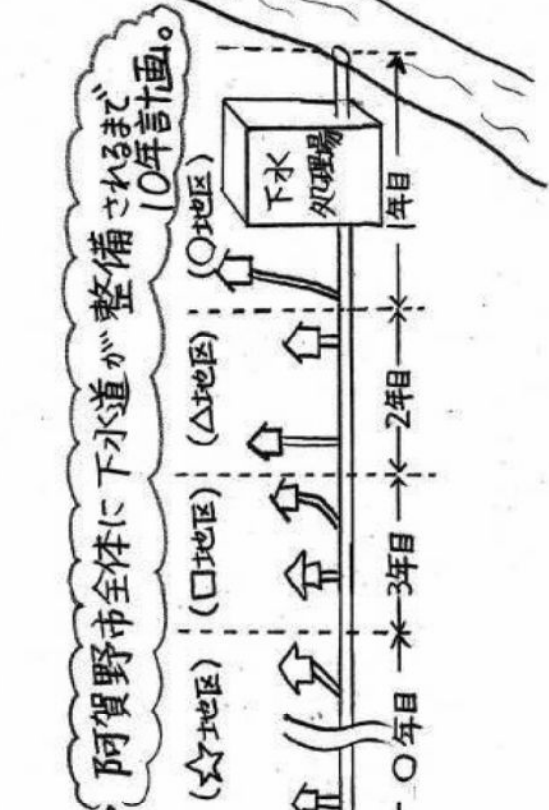 阿賀野市全体に下水道が整備されるまで
10年計画。
(☆地区)
(□地区)
(△地区)
(○地区)
下水
処理場
○年目
3年目
2年目
1年目